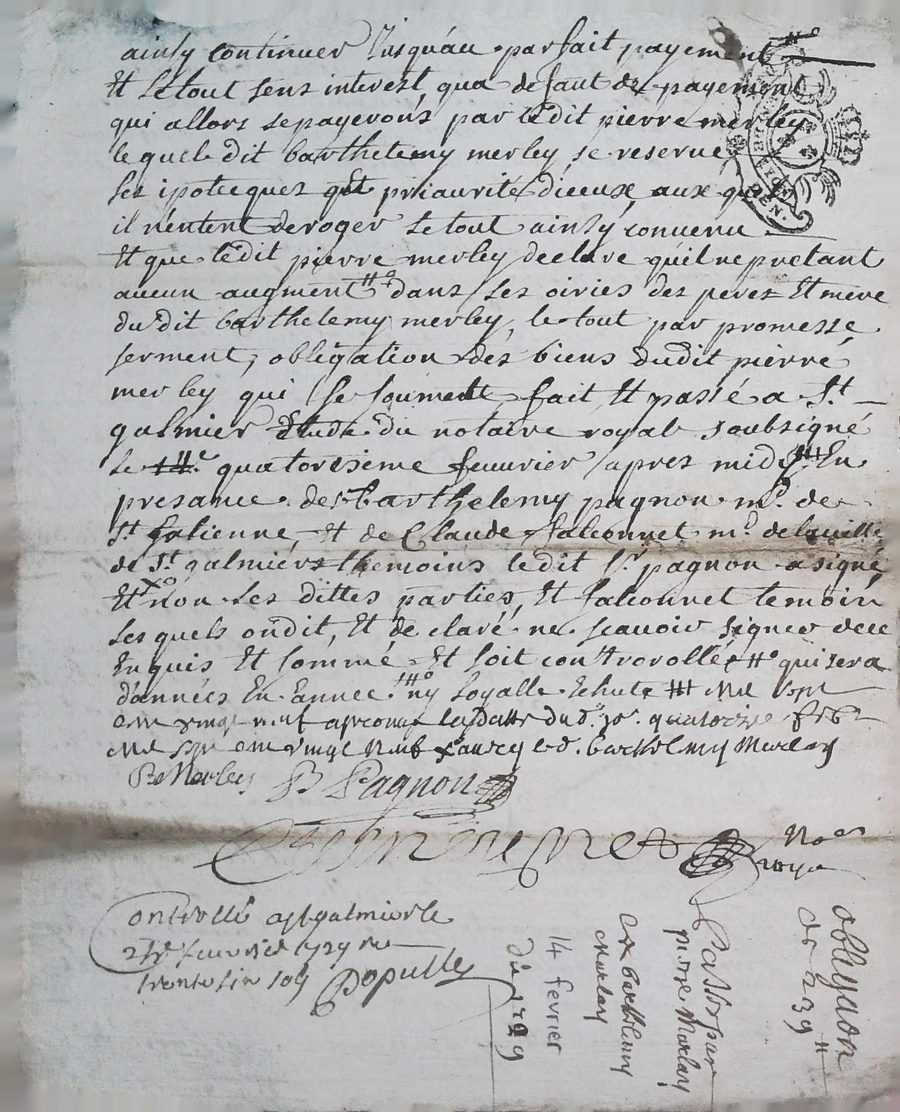 ainsy continuer Jusquau parfait payement
Et le tout sens interest, qua defaut de payement
qui allors sepayerons par ledit pierre merley
lequel dit barthelemy merley se reserve
ses ipotecques Et priaurité dieux aux quels
il n'entent deroger le tout ainsy convenu
Et que ledit pierre merley declare quil ne pretant
aucun augment dans ses oiries des peres Et mere
du dit barthelemy merley, le tout par promesse
serment, obligation des biens dudit pierre
merley qui se soumette fait Et passé a St
galmier Etude du notaire royal soubsigné
le quatorsième feuvrier apres midy En
presance des barthelemy pagnon md. de
St. Et de Claude falconnet md. de la ville
de St. galmier themoins ledit Sr. pagnon a signé
Et non les dittes parties, Et falconnet temoin
lesquels ondit, Et declaré ne scavoir signer dece
Enquis Et sommé Et soit controrollé qui sera
d'années En Annee ny loyalle Echute Mil sept
cen vingt neuf la datte du d. jo. quatorzie feb
Mil sept cen vingt neuf led. bartholmy Merlay
B Merley B Pagnon
No.re
roya
Controllé a St galmier le
feuvrier 1729 Re
trente six sols Dopulle
oblignon
de 239 ll
Passé par
pierre Merlay
barthlemy
Merlay
14 fevrier
du 1729